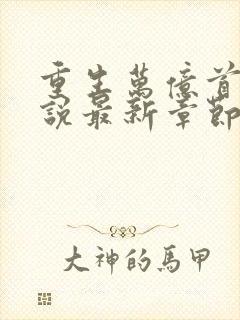 重生萬億首
說最新章節
大神的馬甲